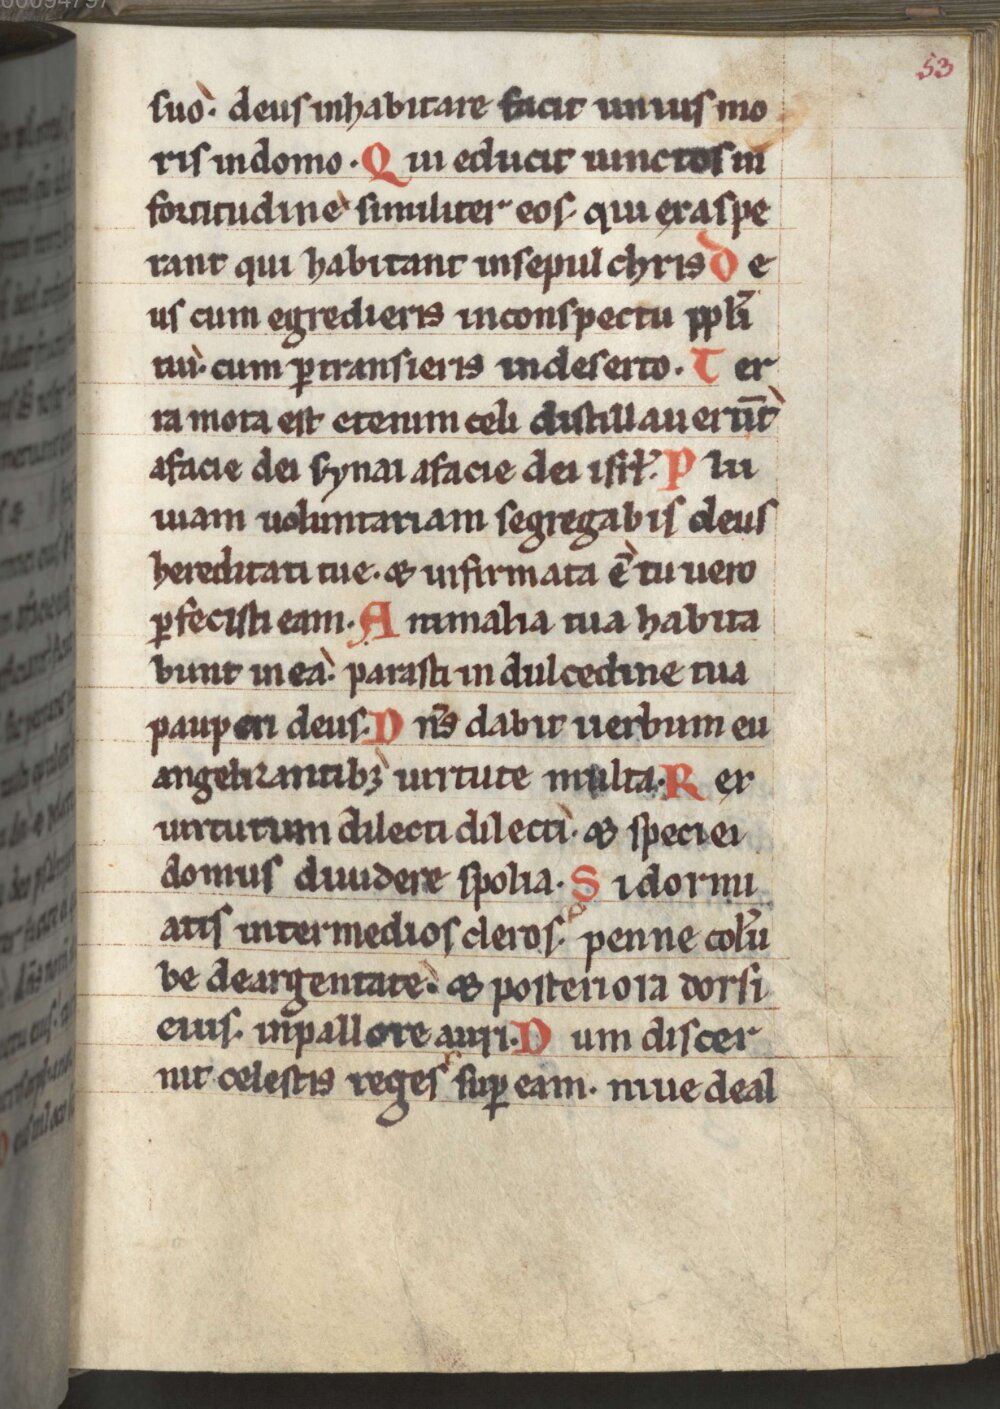 53
suo. deus inhabitare facit unius mo
ris in domo. Qui educit uinctos in
fortitudine similiter eos. qui exaspe
rant qui habitant in sepulchris De
us cum egredieris in conspectu ppłi
tui. cum ꝑtransieris in deserto. Ter
ra mota est etenim celi distillauerūt
a facie dei synai a facie dei isrł. Plu
uiam uoluntariam segregabis deus
hereditati tue. & infirmata ē tu uero
ꝑfecisti eam. Animalia tua habita
bunt in ea. parasti in dulcedine tua
pauperi deus. Dn̄s dabit uerbum eu
angelizantibꝫ uirtute multa. Rex
uirtutum dilecti dilecti. & speciei
domus diuidere spolia. Si dormi
atis inter medios cleros. penne colū
be deargentate. & posteriora dorsi
eius. in pallore auri. Dum discer
nit celestis reges suꝑ eam. niue deal